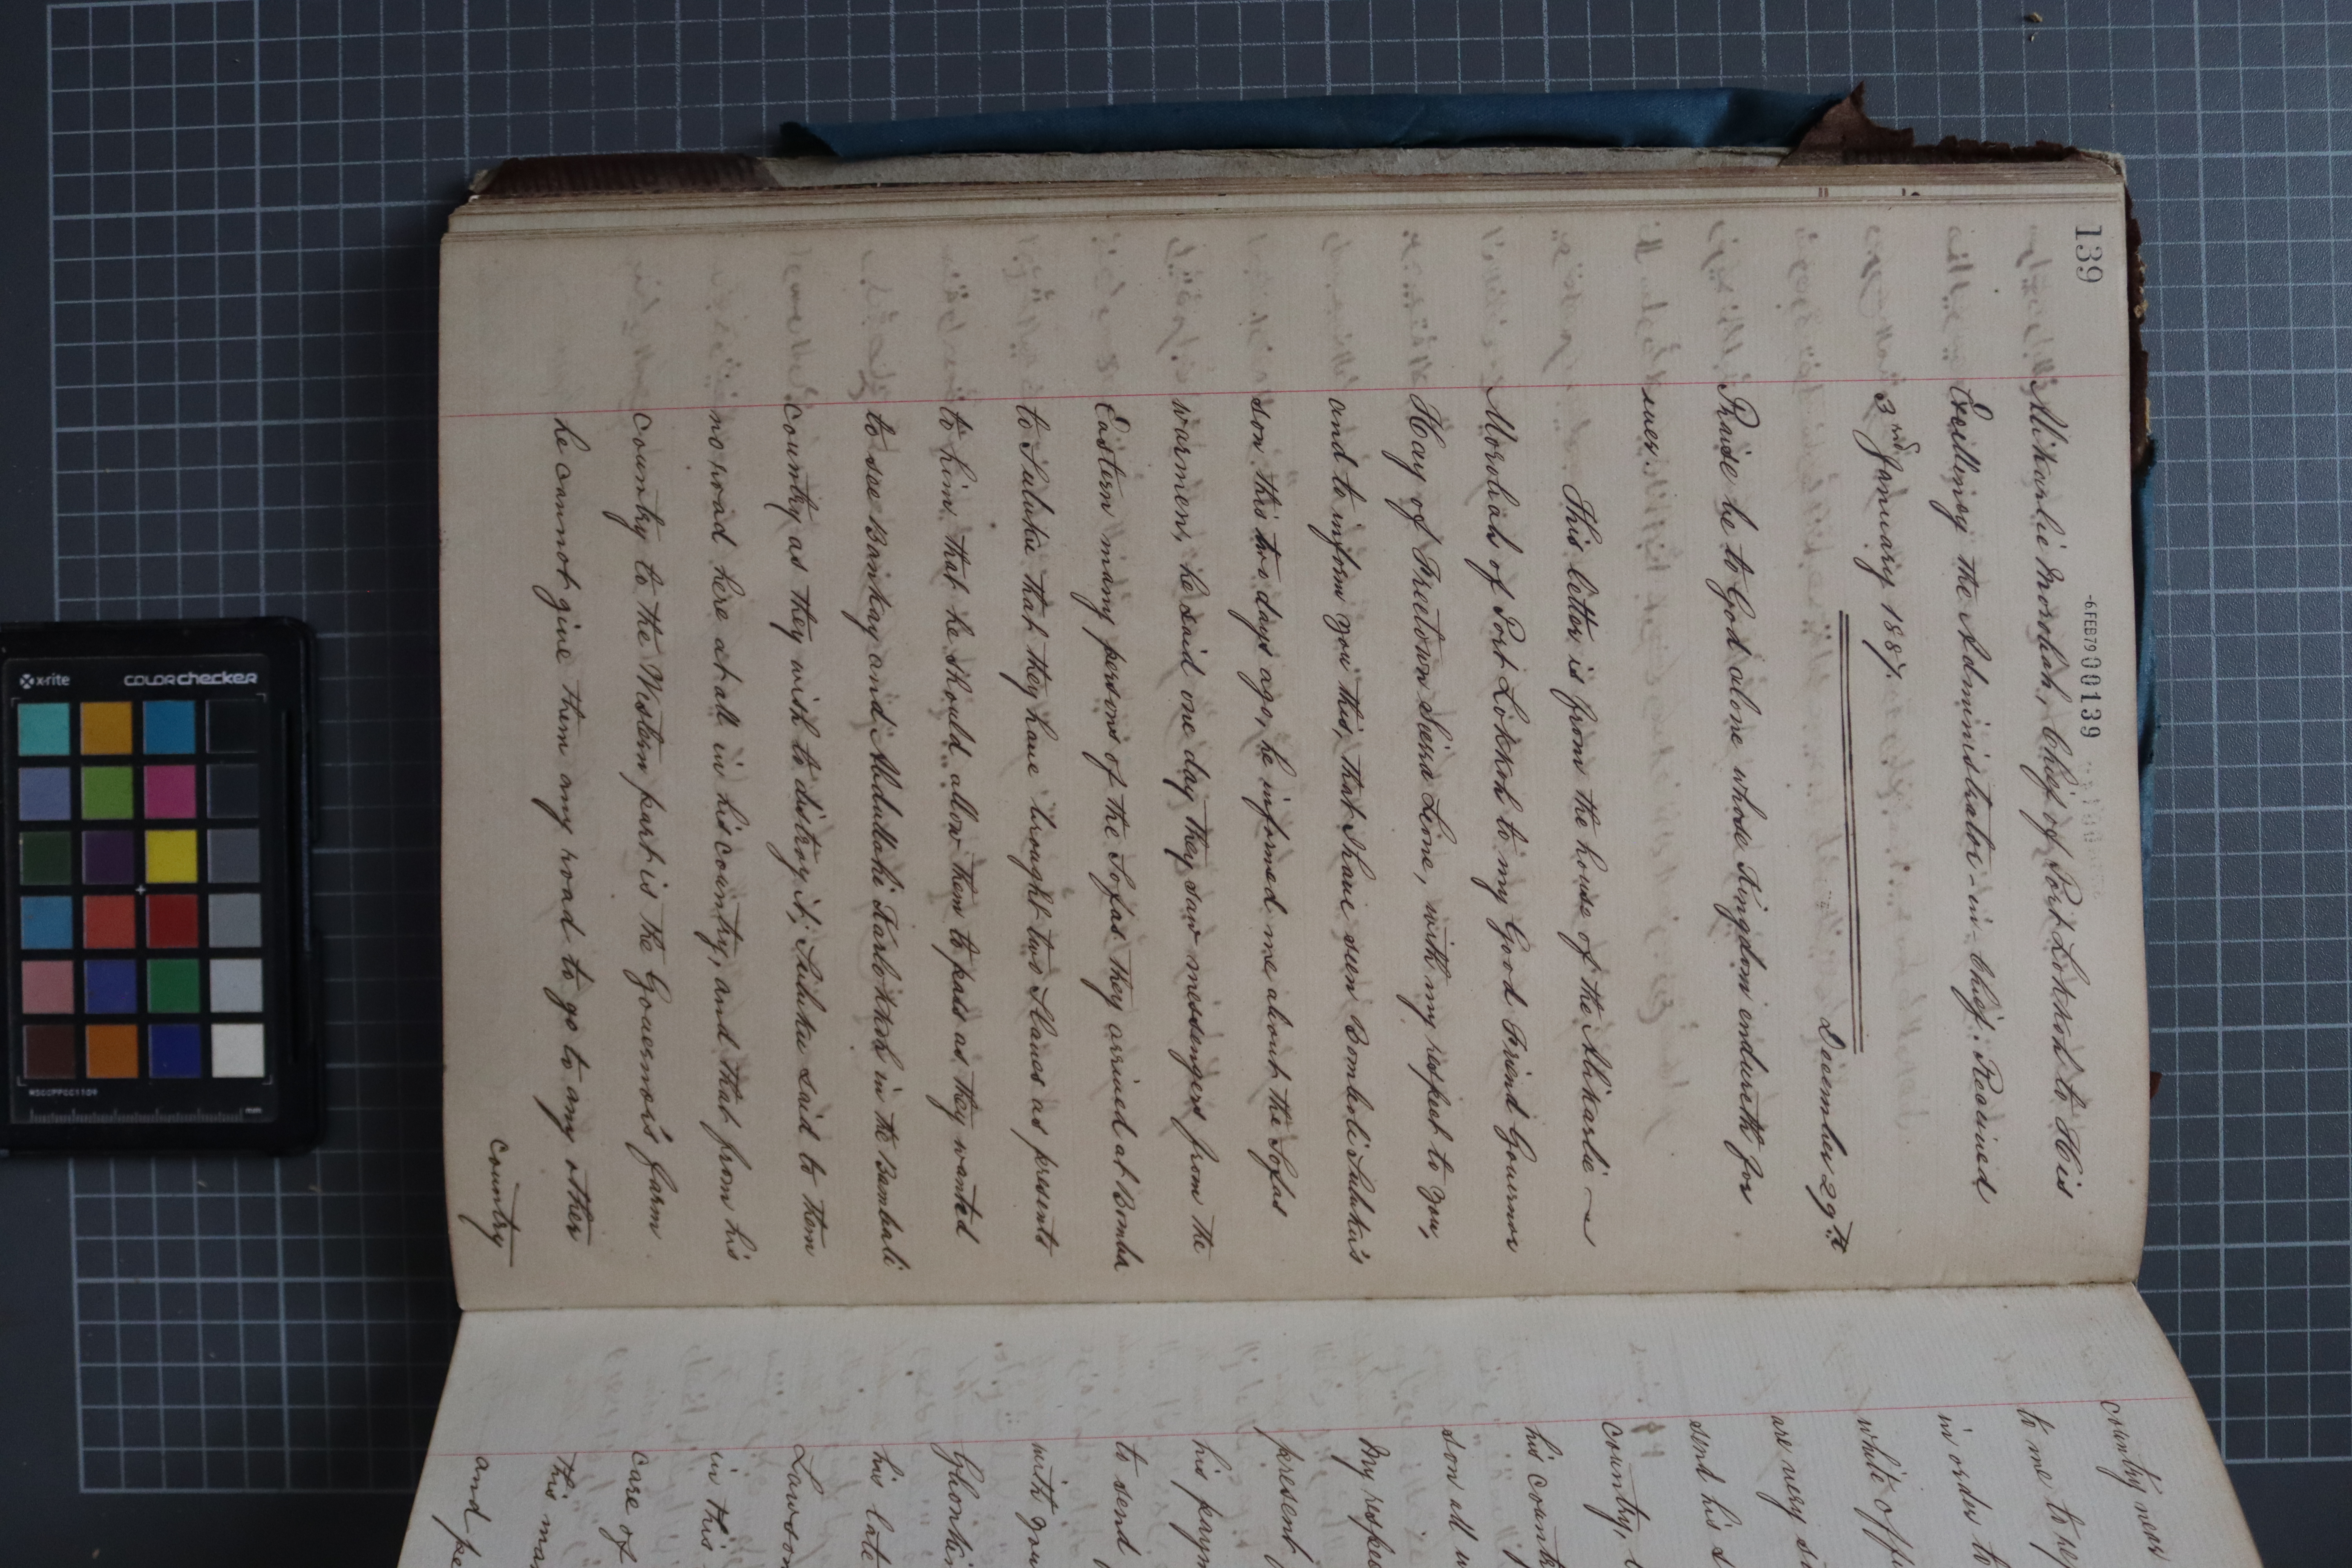 139
-6 FEB 79 00139
Alikarlie Morobah, Chief of Port Lokkoh to His
Excellincy the Administrator-in-Chief: Received
3rd January 1887.
December 29th
Praise be to God alone whose Kingdom endureth for
ever.
This letter is from the house of the Alikarlie
Morobah of Port Lokkoh to my Good Friend Governor
Hay of Freetown Sierra Leone, with my respect to you,
and to inform you this, that I have seen Bomboli Suluku's
son this two days ago, he informed me about the Sofas
warmen, he said one day they saw messengers from the
Eastern many persons of the Sofas they arrived at Bomba
to Suluku that they have brought two Slaves as presents
to him, that he should allow them to pass as they wanted
to see Bankay and Abdullahi Karlokkoh in the Bambali
country as they wish to distroy it; Suluku said to them
no road here at all in his country, and that from his
country to the Western part is the Governor's farm
he cannot give them any road to go to any other
country
country near
to me to
in order to
white off
are very
send his s
country,
his count
son all
My respe
present
his paym
to send
with you
his late
Lawson
in this
care of
this man
and pe
x-rite
colorchecker
MSCCPPCC1109
mm